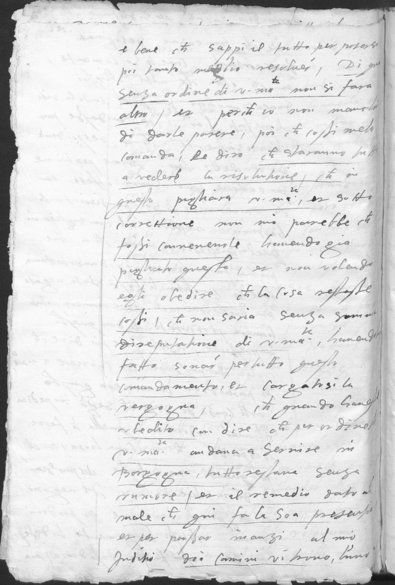 e bene ch sappi il tutto per posersi
poi tanto meglio resolvers, Di qua
senza ordine di v. ma.te non si fara
altro, et perch io non mancho
di darle parere, poi ch cossi melo
comanda, Le diro ch staranno
a vedere la risolutione, ch in
questo pigliara v. ma.te, et sotto
correttione non mi parebbe ch
fossi convenevole havendo gia
pigliato questo, et non volendo
egli obedire ch la cosa restasse
cossi, ch non saria senza
disreputatione di v. ma.te, havendo
fatto sonar per tutto questo
comandamento, et cargatosi la
vergogna, ch quando havesse
obedito con dire ch per ordine
v. ma.te andava a Servire in
Borgogna, tutto restava senza
rumore, et il remedio dato al
male ch qui fa la Soa presentia
et per passar inanzi al mio
Juditio doi camini vi sono, l'uno